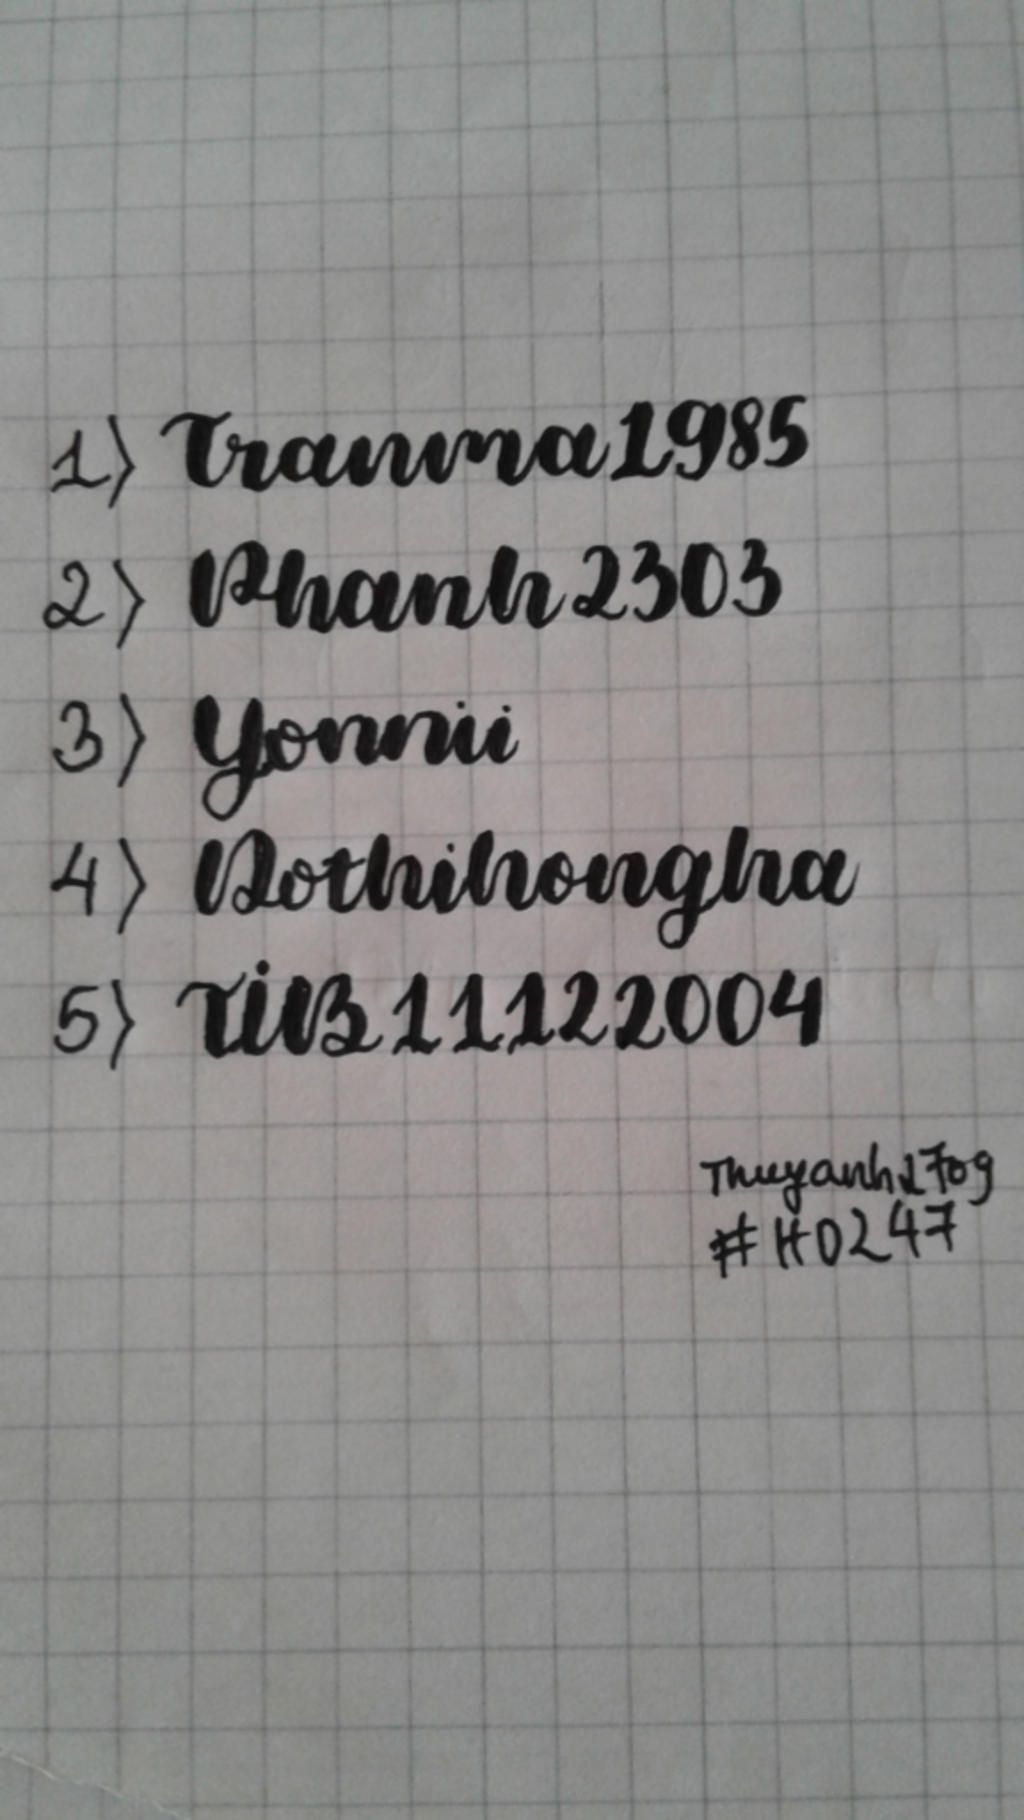 1) Tranma1985
2) Phanh2303
3) Yonnii
4) Dothihongha
5) TiUB11122004
Thuyanh2709
#HD247